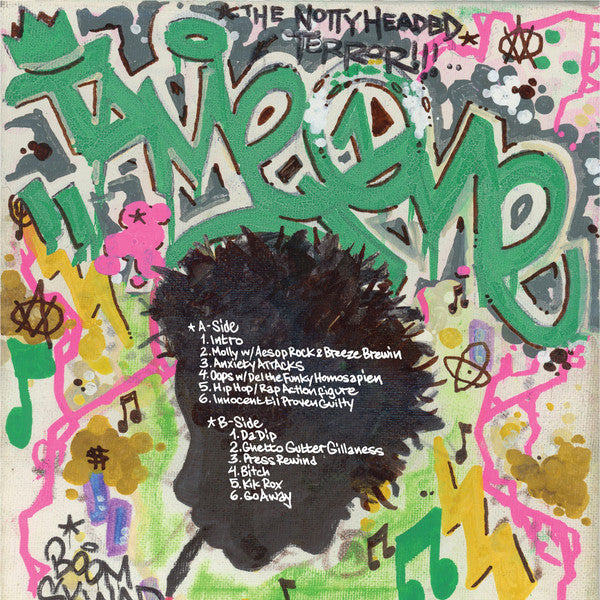 *THE NOTTYHEADED*
TERROR!!!
TAME ONE
*A-Side
1. Intro
2. Molly w/ Aesop Rock & Breeze Brewin
3. Anxiety ATTACKS
4. Oops w/ Del the Funky Homosapien
5. Hip Hop/Rap Action figure
6. Innocent til Proven Guilty
*B-Side
1. Da Dip
2. Ghetto Gutter Gillaness
3. Press Rewind
4. Bitch
5. Kik Rox
6. Go Away
$
*BOOM
SKWAD